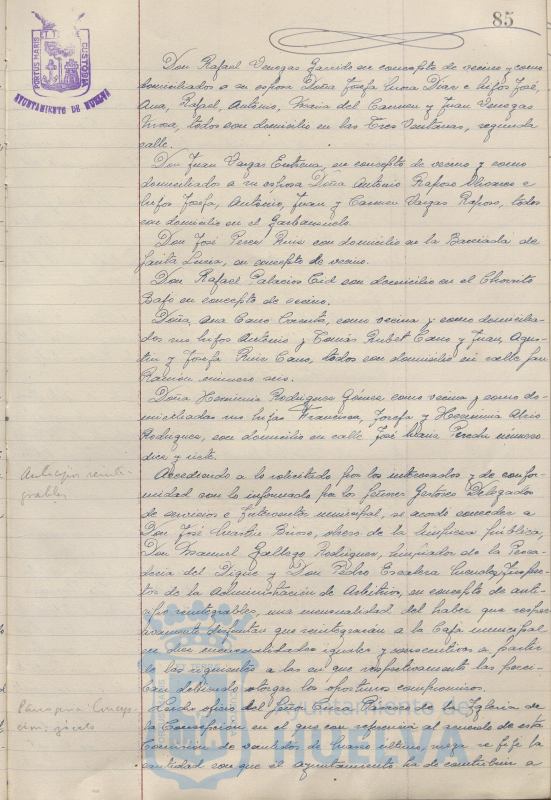 85
PORTUS MARIS ET TERRAE CUSTODIA
AYUNTAMIENTO DE HUELVA
Don Rafael Venegas Garrido en concepto de vecino y como
domiciliados a su esposa Doña Josefa Mora Diaz e hijos José,
Ana, Rafael, Antonio, María del Carmen y Juan Venegas
Mora, todos con domicilio en las Tres Ventanas, segunda
calle.
Don Juan Vargas Entrena, en concepto de vecino y como
domiciliados a su esposa Doña Antonia Raposo e
hijos Josefa, Antonio, Juan y Carmen Vargas Raposo, todos
con domicilio en el
Don José Perez Ruiz con domicilio en la Barriada de
Santa Lucia, en concepto de vecino.
Don Rafael Palacios Cid con domicilio en el Chorrito
Bajo en concepto de vecino.
Doña Ana Cano como vecina y como domicilia-
dos sus hijos Antonio y Tomás Cano y Juan, Agus-
tin y Josefa Ruiz Cano, todos con domicilio en calle San
Ramón número seis.
Doña Herminia Rodriguez Gómez como vecina y como do-
miciliadas sus hijas Francisca, Josefa y Herminia
Rodriguez, con domicilio en calle José María Pereda número
diez y siete.
Anticipos reinte-
grables
Accediendo a lo solicitado por los interesados y de confor-
midad con lo informado por los Señores Gestores Delegados
de servicios e Interventor municipal, se acordó conceder a
Don José obrero de la limpieza pública,
Don Manuel Gallego Rodriguez, limpiador de la Pesca-
deria del Dique y Don Pedro Escalera
tos de la Administración de Arbitrios, en concepto de anti-
cipo reintegrables, una mensualidad del haber que respec-
tivamente disfrutan que reintegrarán a la Caja municipal
en diez mensualidades iguales y consecutivas a partir
de las siguientes a las en que respectivamente las perci-
ban debiendo otorgar los oportunos compromisos.
Parroquia Concep-
ción;
Leido oficio del Señor Cura Párroco de la Iglesia de
la Concepción en el que con referencia al acuerdo de esta
Comisión de veintidos de Marzo último, ruega se fije la
cantidad con que el Ayuntamiento ha de contribuir a
Ayuntamiento de
HUELVA